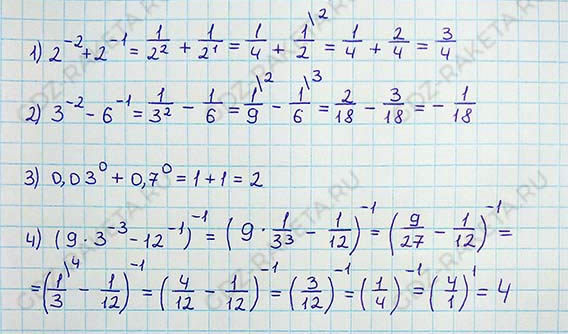 1) 2⁻² + 2⁻¹ = 1/2² + 1/2¹ = 1/4 + 1\²/2 = 1/4 + 2/4 = 3/4
2) 3⁻² - 6⁻¹ = 1/3² - 1/6 = 1\²/9 - 1\³/6 = 2/18 - 3/18 = - 1/18
3) 0,03⁰ + 0,7⁰ = 1 + 1 = 2
4) (9 · 3⁻³ - 12⁻¹)⁻¹ = (9 · 1/3³ - 1/12)⁻¹ = (9/27 - 1/12)⁻¹ =
= (1\⁴/3 - 1/12)⁻¹ = (4/12 - 1/12)⁻¹ = (3/12)⁻¹ = (1/4)⁻¹ = (4/1)¹ = 4
GDZ-RAKETA.RU